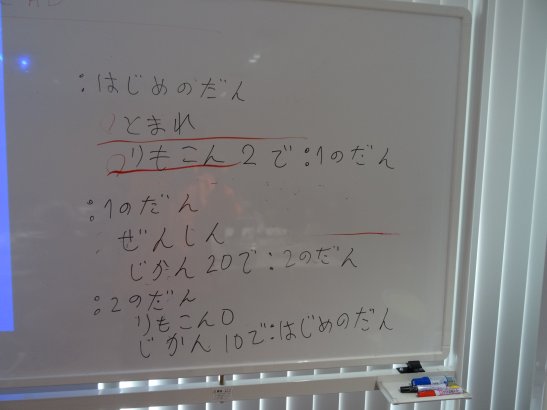 :はじめのだん
とまれ
りもこん 2 で :1のだん
:1のだん
ぜんしん
じかん 20で :2のだん
:2のだん
りもこん0
じかん 10で:はじめのだん